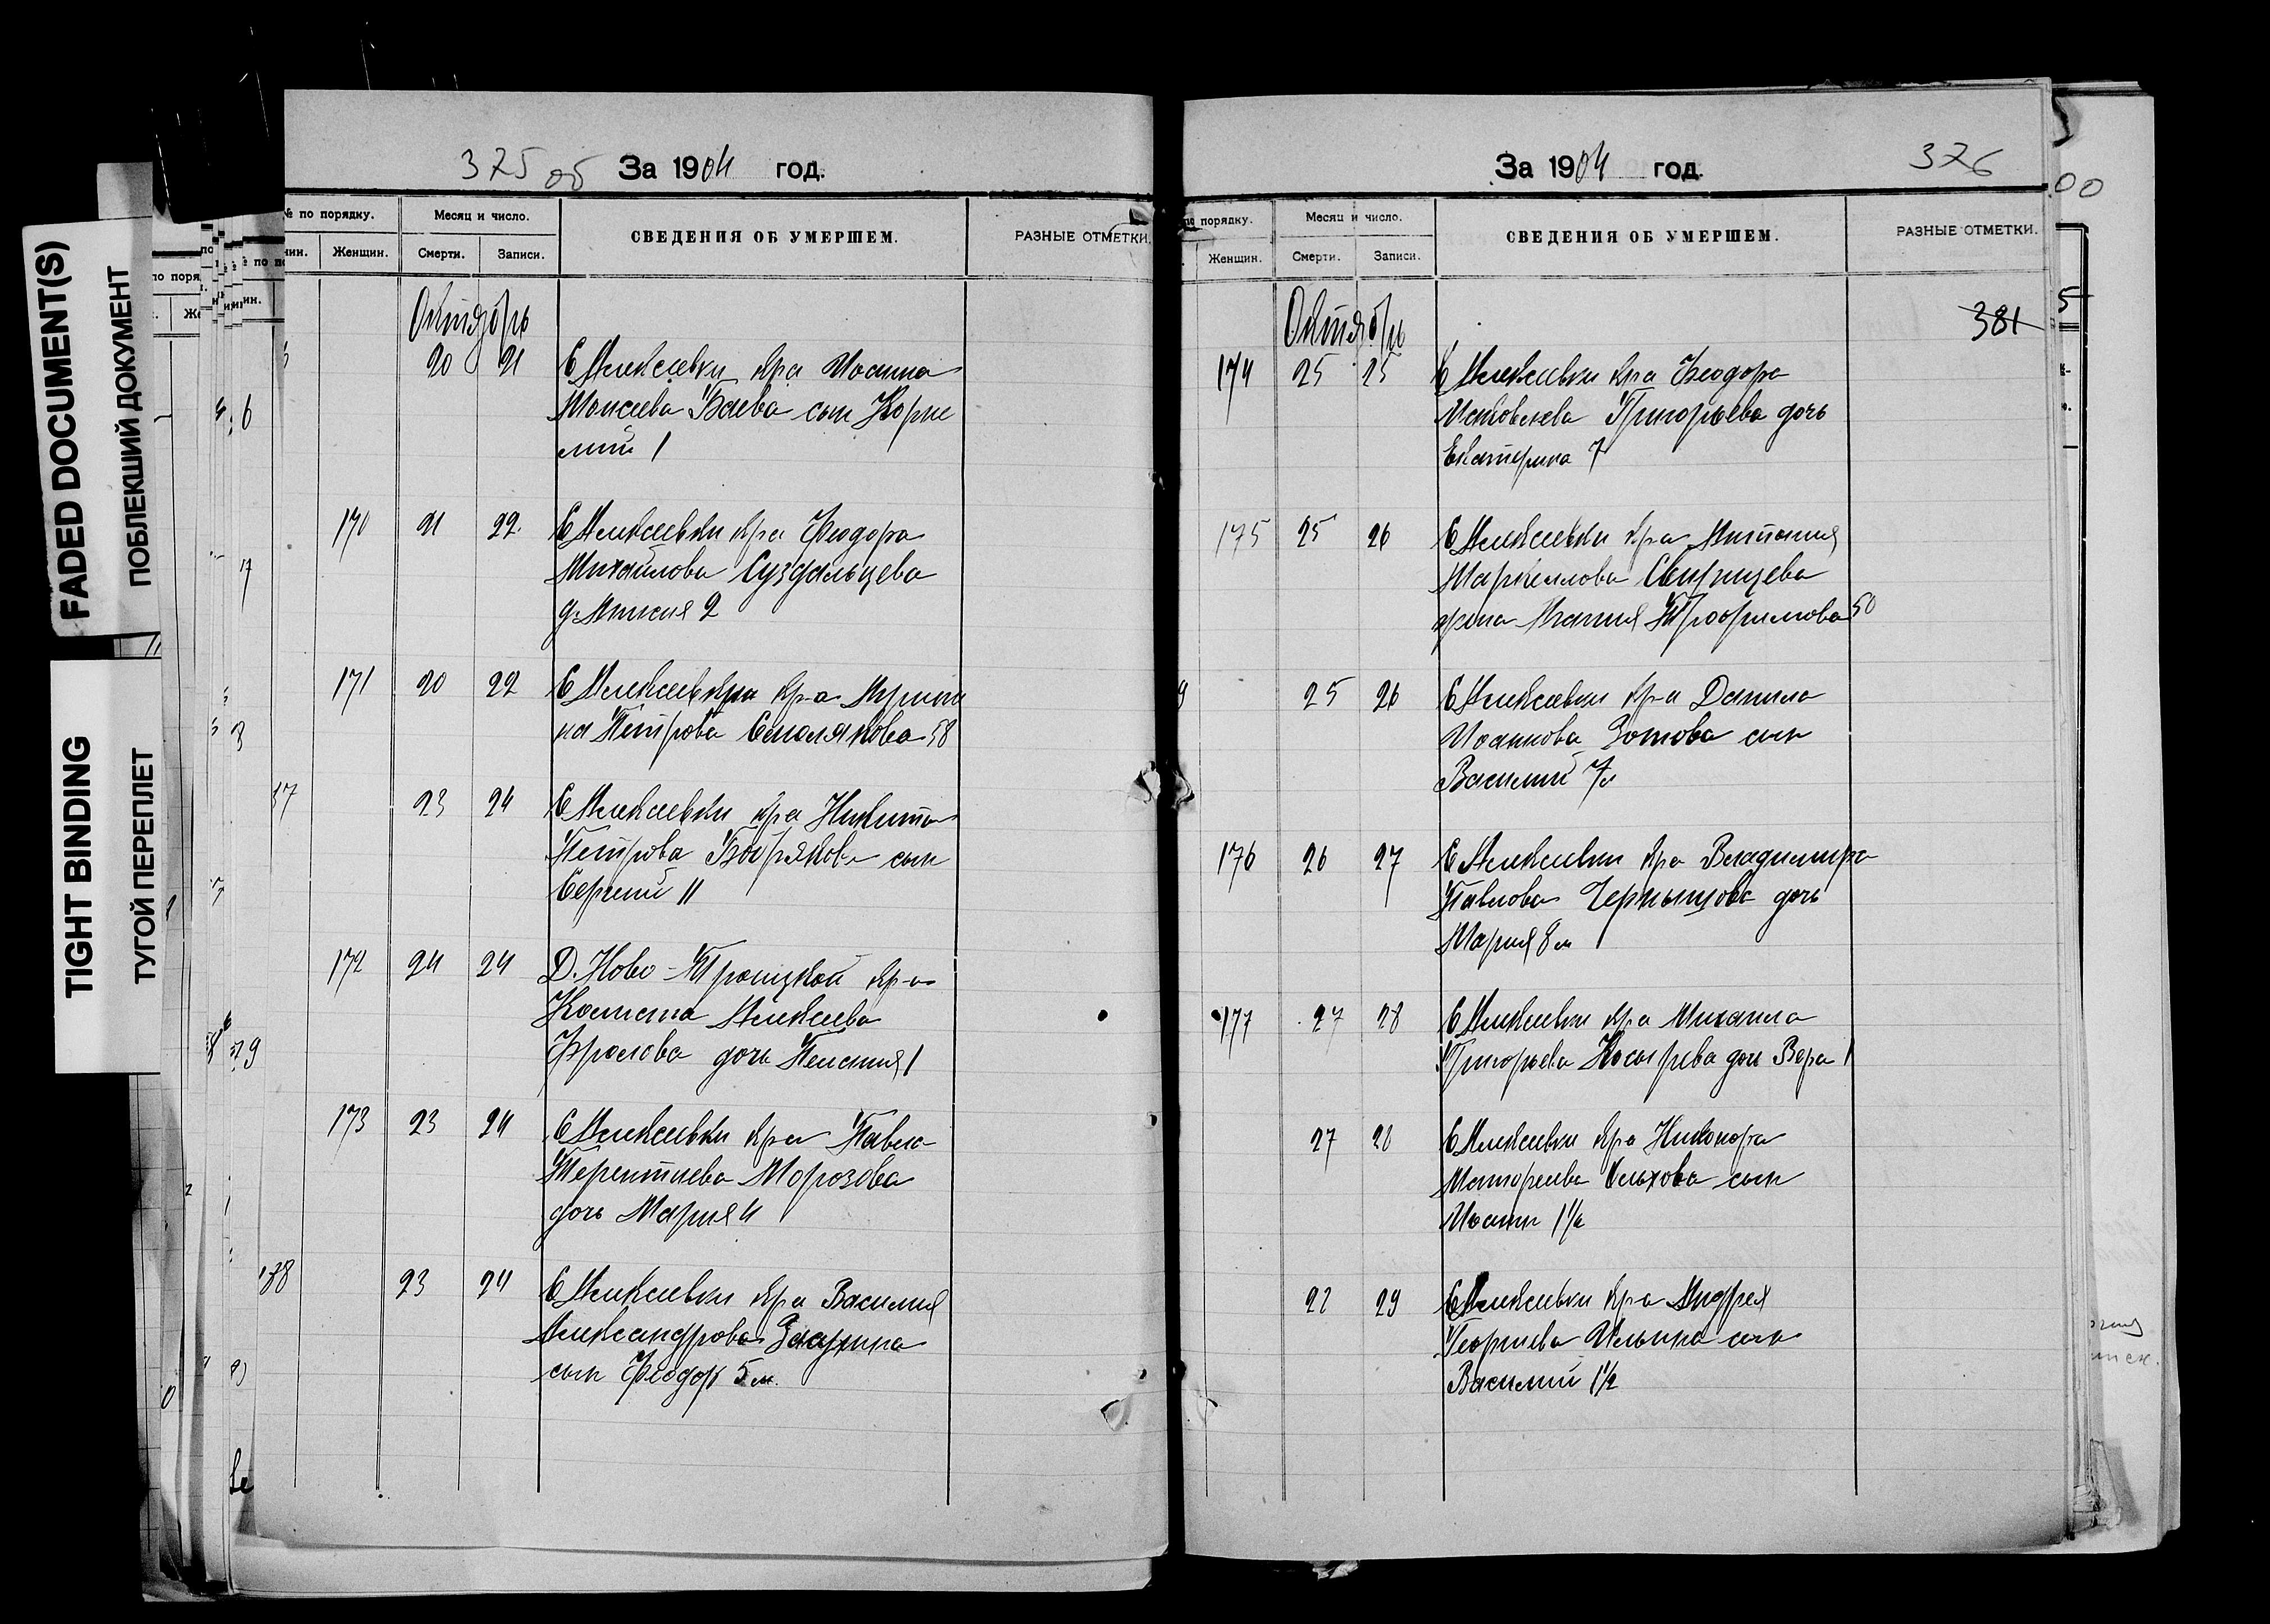 FADED DOCUMENT(S)
ПОБЛЕКШИЙ ДОКУМЕНТ
TIGHT BINDING
ТУГОЙ ПЕРЕПЛЕТ
375 об За 1904 год.
№ по порядку. Месяц и число. СВЕДЕНИЯ ОБ УМЕРШЕМ. РАЗНЫЕ ОТМЕТКИ.
Женщин. Смерти. Записи.
Октябрь
20 21 С Алексеевки кр-а Иоанна
Моисеева Баева сын Корни
лий 1
170 21 22 С Алексеевки кр-а Феодора
Михайлова Суздальцева
д. Анисия 2
171 20 22 С Алексеевки кр-а Ирина
Петрова Смолякова 58
23 24 С Алексеевки кр-а Никиты
Петрова сын
Сергий 11
172 24 24 Д. Ново-Троицкой кр-а
Алексеева
Фролова дочь 1
173 23 24 С Алексеевки кр-а Павла
Терентиева Морозова
дочь Мария 4
23 24 С Алексеевки кр-а Василия
Александрова
сын Феодор 5 м.
За 1904 год. 376
по порядку. Месяц и число. СВЕДЕНИЯ ОБ УМЕРШЕМ. РАЗНЫЕ ОТМЕТКИ.
Женщин. Смерти. Записи.
Октябрь 381
174 25 25 С Алексеевки кр-а Феодора
Григорьева дочь
Екатерина 7
175 25 26 С Алексеевки кр-а Антония
Маркеллова
жена Трофимова 50
25 26 С Алексеевки кр-а Данила
Иоаннова Зотова сын
Василий 7 м
176 26 27 С Алексеевки кр-а Владимира
Павлова Чернышова дочь
Мария 8 м
177 27 28 С Алексеевки кр-а Михаила
Григорьева дочь Вера 1
27 28 С Алексеевки кр-а Никонора
сын
Иоанн 1 1/2
29 С Алексеевки кр-а Андрея
Георгиева Ильина сын
Василий 1 1/2